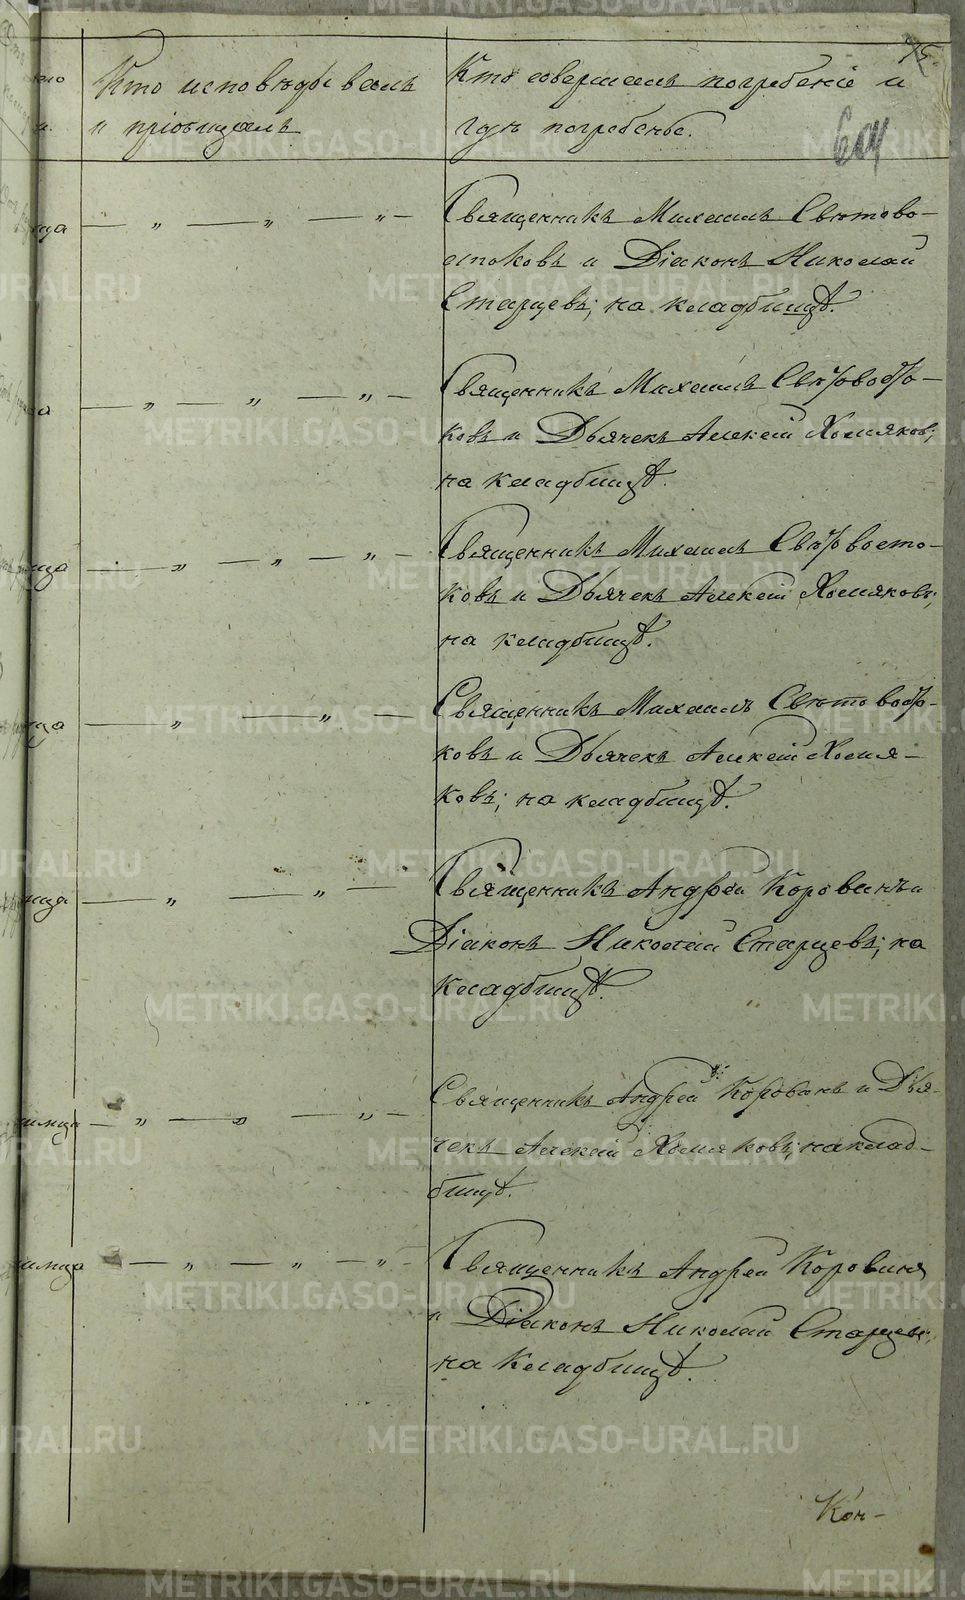 75.
Кто исповѣдывалъ
и пріобщалъ
Кто совершалъ погребеніе и
гдѣ погребены.
604
Священникъ Михаилъ Свѣтово-
стоковъ и Діаконъ Николай
Старцевъ; на кладбищѣ.
Священникъ Михаилъ Свѣтовосто-
ковъ и Дьячекъ Алексій Хомяковъ;
на кладбищѣ.
Священникъ Михаилъ Свѣтовосто-
ковъ и Дьячекъ Алексій Хомяковъ;
на кладбищѣ.
Священникъ Михаилъ Свѣтовосто-
ковъ и Дьячекъ Алексій Хомя-
ковъ; на кладбищѣ.
Священникъ Андрей Коровинъ и
Діаконъ Николай Старцевъ; на
кладбищѣ.
Священникъ Андрей Коровинъ и Дья-
чекъ Алексій Хомяковъ; на клад-
бищѣ.
Священникъ Андрей Коровинъ
и Діаконъ Николай Старцевъ;
на кладбищѣ.
Кон-
METRIKI.GASO-URAL.RU